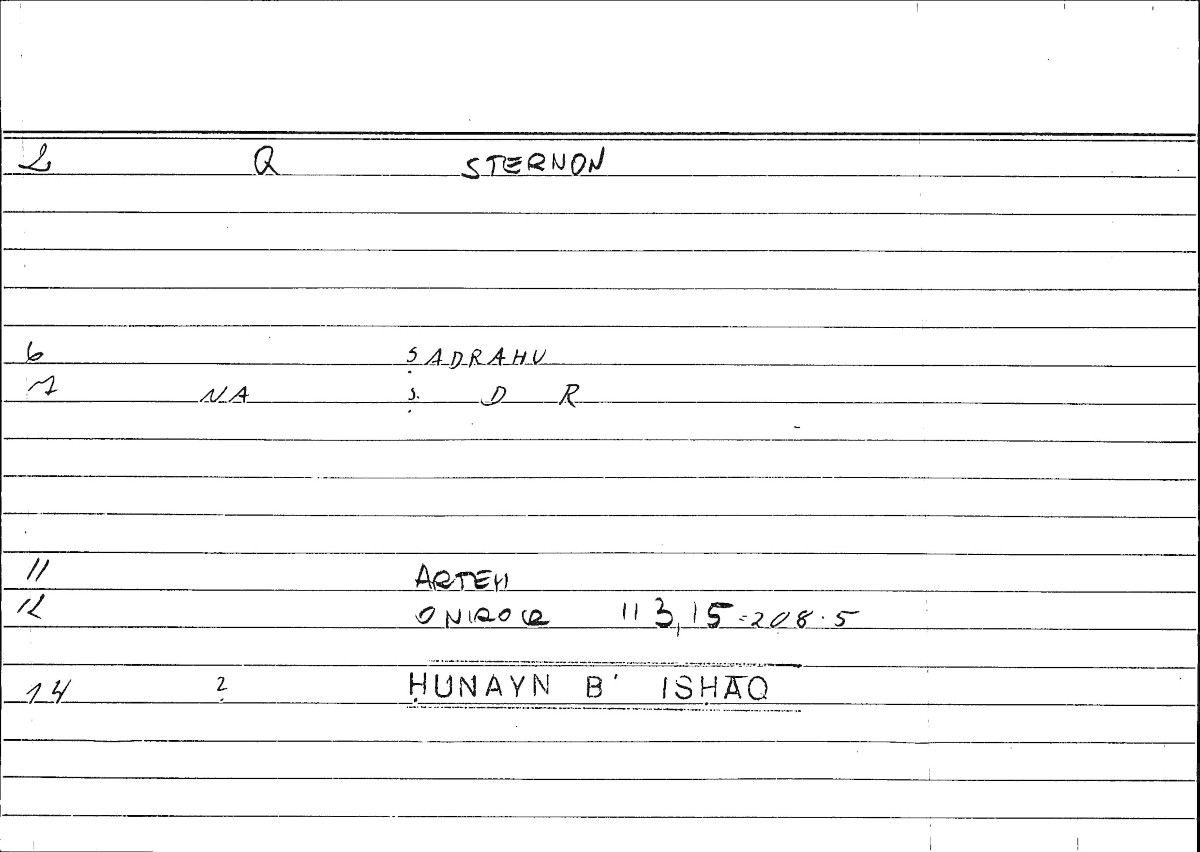 2 Q STERNON
6 ṢADRAHU
7 NA Ṣ D R
11 ARTEM
12 ONIROCR 113,15=208.5
14 ? ḤUNAYN B' ISḤĀQ